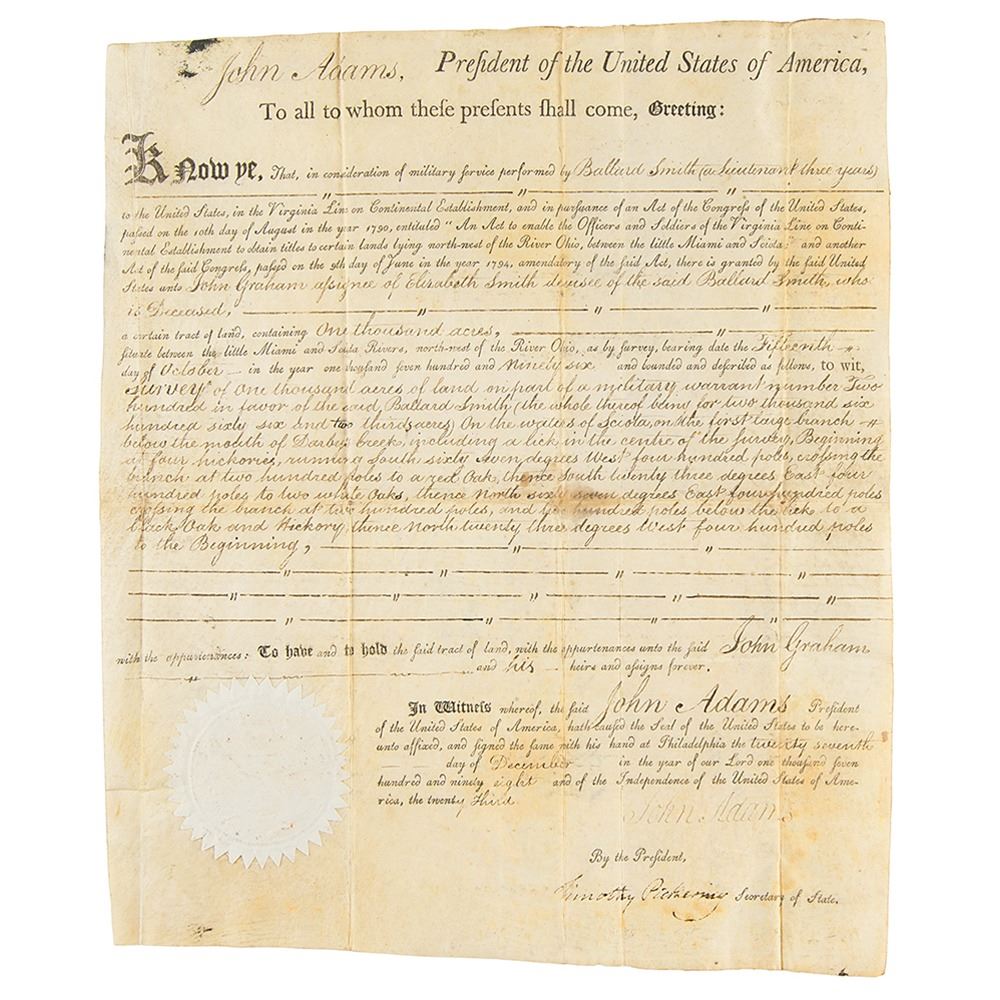 John Adams, Preſident of the United States of America,
To all to whom theſe preſents ſhall come, Greeting:
Know ye, That, in conſideration of military ſervice performed by Ballard Smith (a Lieutenant three years)
to the United States, in the Virginia Line on Continental Eſtabliſhment, and in purſuance of an Act of the Congreſs of the United States,
paſſed on the 10th day of Auguſt in the year 1790, entituled " An Act to enable the Officers and Soldiers of the Virginia Line on Conti-
nental Eſtabliſhment to obtain titles to certain lands lying north-weſt of the River Ohio, between the little Miami and Sciota;" and another
Act of the ſaid Congreſs, paſſed on the 9th day of June in the year 1794, amendatory of the ſaid Act, there is granted by the ſaid United
States unto John Graham aſsignee of Elizabeth Smith deviſee of the said Ballard Smith, who
is Deceased,
a certain tract of land, containing One thousand acres,
ſituate between the little Miami and Sciota Rivers, north-weſt of the River Ohio, as by ſurvey, bearing date the Fifteenth
day of October in the year one thouſand ſeven hundred and Ninety six and bounded and deſcribed as follows, to wit,
Survey of One thousand acres of land on part of a military warrant number Two
hundred in favor of the said Ballard Smith (the whole thereof being for two thousand six
hundred sixty six and two thirds acres) On the waters of Sciota, on the first large branch
below the mouth of Darby Creek, including a lick in the centre of the survey, Beginning
at four hickories, running South sixty seven degrees West four hundred poles, crossing the
branch at two hundred poles to a red Oak, thence South twenty three degrees East four
hundred poles to two white Oaks, thence North sixty seven degrees East four hundred poles
crossing the branch at two hundred poles, and two hundred poles below the lick to a
black Oak and Hickory, thence North twenty three degrees West four hundred poles
to the Beginning,
with the appurtenances: To have and to hold the ſaid tract of land, with the appurtenances unto the ſaid John Graham
and his heirs and aſſigns forever.
In Witneſs whereof, the ſaid John Adams Preſident
of the United States of America, hath cauſed the Seal of the United States to be here-
unto affixed, and ſigned the ſame with his hand at Philadelphia the twenty seventh
day of December in the year of our Lord one thouſand ſeven
hundred and ninety eight and of the Independence of the United States of Ame-
rica, the twenty Third
John Adams
By the Preſident,
Timothy Pickering Secretary of State.